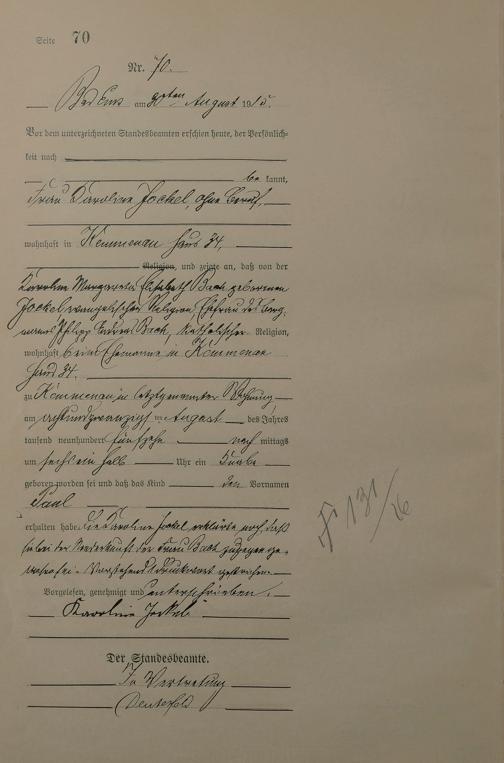 Seite 70
Nr. 70.
Bad Ems am 30ten August 1915.
Vor dem unterzeichneten Standesbeamten erschien heute, der Persönlich-
keit nach
be kannt,
Frau Karoline Jockel, ohne Beruf,
wohnhaft in Kemmenau Haus 34,
Religion, und zeigte an, daß von der
Karoline Margareta Elisabeth Bach geborenen
Jockel evangelischer Religion, Ehefrau des Berg-
manns Philipp Bach, katholischer Religion,
wohnhaft beim Ehemanne in Kemmenau
Haus 34.
zu Kemmenau in letztgenannter Wohnung
am achtundzwanzigsten August des Jahres
tausend neunhundert fünfzehn nach mittags
um sechs ein halb Uhr ein Knabe
geboren worden sei und daß das Kind den Vornamen
Paul
erhalten habe. Die Karoline Jockel erklärte noch, daß
sie bei der Niederkunft der Frau Bach zugegen ge-
wesen sei. Vorstehend Druckwort gestrichen
Vorgelesen, genehmigt und unterschrieben.
Karoline Jockel
Der Standesbeamte.
In Vertretung
F 131/26